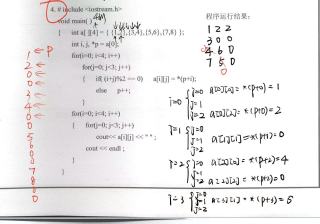 4. # include <iostream.h>
void main( )
{ int a[ ][4] = { {1,2},{3,4},{5,6},{7,8} };
int i, j, *p = a[0];
for(i=0; i<4; i++)
for(j=0; j<3; j++)
{ if( (i+j)%2 == 0) a[i][j] = *(p+i);
else p++;
}
for(i=0; i<4; i++)
{ for(j=0; j<3; j++)
cout<< a[i][j] << " " ;
cout << endl ;
}
程序运行结果:
1 2 2
3 0 0
4 6 0
7 5 0
0
← p
1
2
0
0
3
4
0
0
5
6
0
0
7
8
0
0
i=0
j=0 a[0][0] = *(p+0) = 1
j=1
j=2 a[0][2] = *(p+0) = 2
i=1
j=0
j=1 a[1][1] = *(p+1) = 0
j=2
i=2
j=0 a[2][0] = *(p+2) = 4
j=1
j=2 a[2][2] = *(p+2) = 0
i=3
j=0
j=1 a[3][1] = *(p+3) = 5
j=2